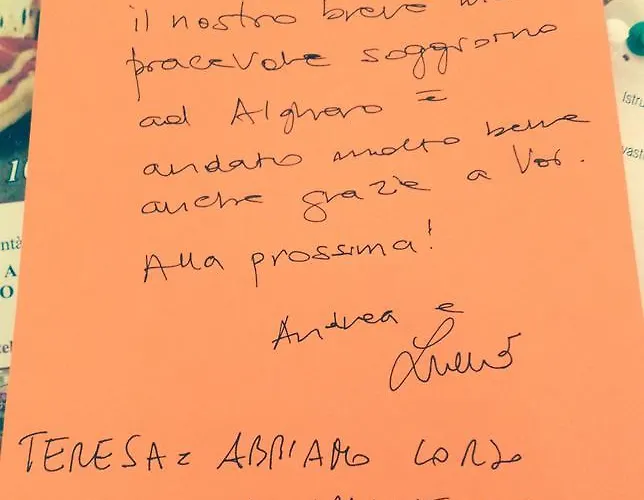 il nostro breve ma
piacevole soggiorno
ad Alghero è
andato molto bene
anche grazie a Voi.
Alla prossima!
Andrea e
TERESA: ABBIAMO
Istru
vast
10
ntà
A
O
tel